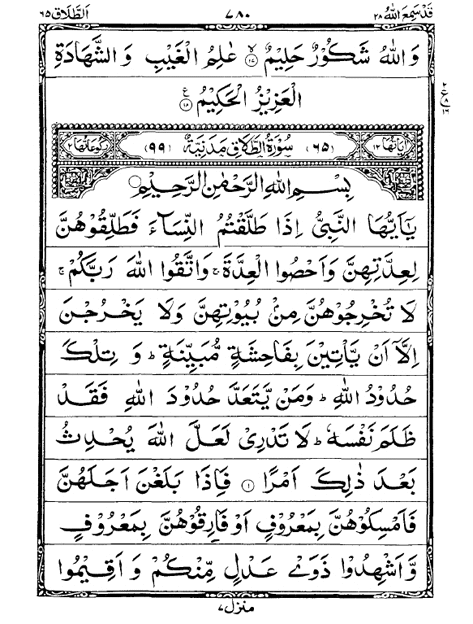 قد سمع الله ٢٨ ٧٨٠ الطلاق ٦٥
وَاللّٰهُ شَكُوْرٌ حَلِيْمٌ ۙ‏﴿۱۷﴾ عٰلِمُ الْغَيْبِ وَ الشَّهَادَةِ
الْعَزِيْزُ الْحَكِيْمُ ﴿۱۸﴾ ع
اٰیاتها ١٢ (٦٥) سُوْرَةُ الطَّلَاقِ مَدَنِيَّةٌ (٩٩) ركوعاتها ٢
بِسْمِ اللّٰهِ الرَّحْمٰنِ الرَّحِيْمِ
يٰۤاَيُّهَا النَّبِىُّ اِذَا طَلَّقْتُمُ النِّسَآءَ فَطَلِّقُوْهُنَّ
لِعِدَّتِهِنَّ وَ اَحْصُوا الْعِدَّةَ ۚ وَاتَّقُوا اللّٰهَ رَبَّكُمْ ۚ
لَا تُخْرِجُوْهُنَّ مِنْۢ بُيُوْتِهِنَّ وَلَا يَخْرُجْنَ
اِلَّاۤ اَنْ يَّاْتِيْنَ بِفَاحِشَةٍ مُّبَيِّنَةٍ ؕ وَ تِلْكَ
حُدُوْدُ اللّٰهِ ؕ وَمَنْ يَّتَعَدَّ حُدُوْدَ اللّٰهِ فَقَدْ
ظَلَمَ نَفْسَهٗ ؕ لَا تَدْرِىْ لَعَلَّ اللّٰهَ يُحْدِثُ
بَعْدَ ذٰلِكَ اَمْرًا ﴿۱﴾ فَاِذَا بَلَغْنَ اَجَلَهُنَّ
فَاَمْسِكُوْهُنَّ بِمَعْرُوْفٍ اَوْ فَارِقُوْهُنَّ بِمَعْرُوْفٍ
وَّ اَشْهِدُوْا ذَوَىْ عَدْلٍ مِّنْكُمْ وَ اَقِيْمُوا
منزل ٧